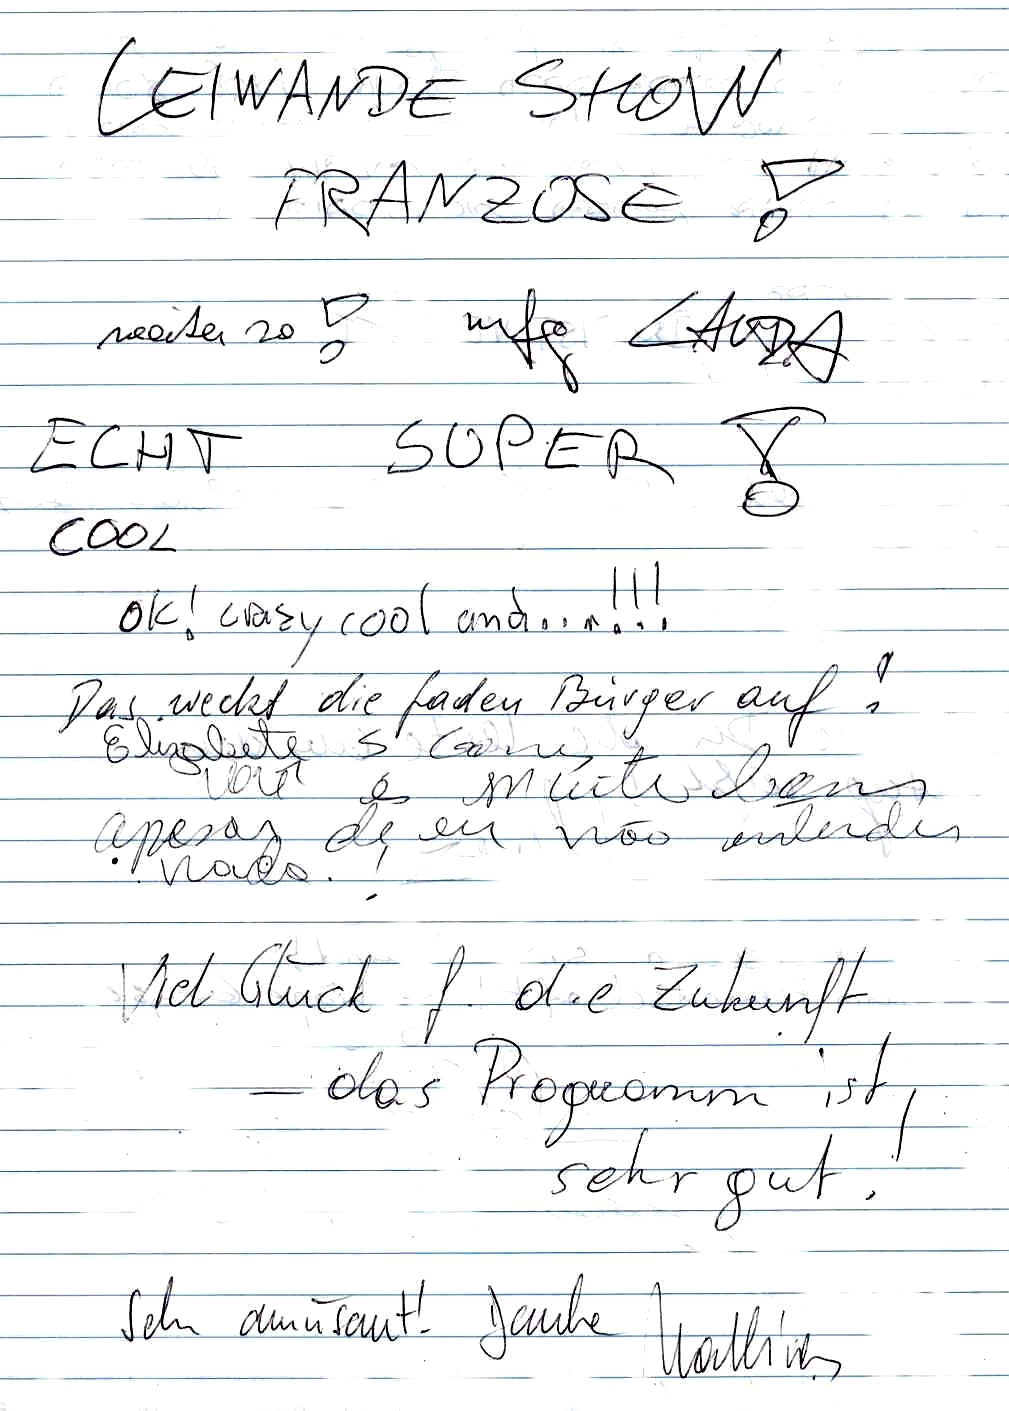 LEIWANDE SHOW
FRANZOSE !
weiter so ! mfg LAUDA
ECHT SUPER !
COOL
OK! crazy cool and......!!!
Das weckt die faden Bürger auf !
Elizabete S
você é muito bom
apesar de eu não entender
nada. !
Viel Glück f. die Zukunft
— das Programm ist
sehr gut !
Sehr amüsant! Danke